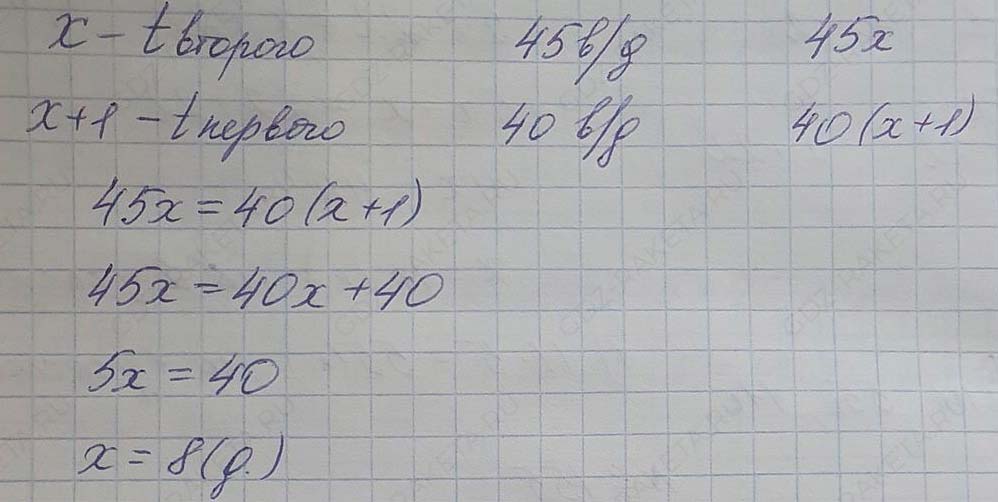 x – t второго 45 в/д 45x
x+1 – t первого 40 в/д 40(x+1)
45x = 40(x+1)
45x = 40x + 40
5x = 40
x = 8(д.)